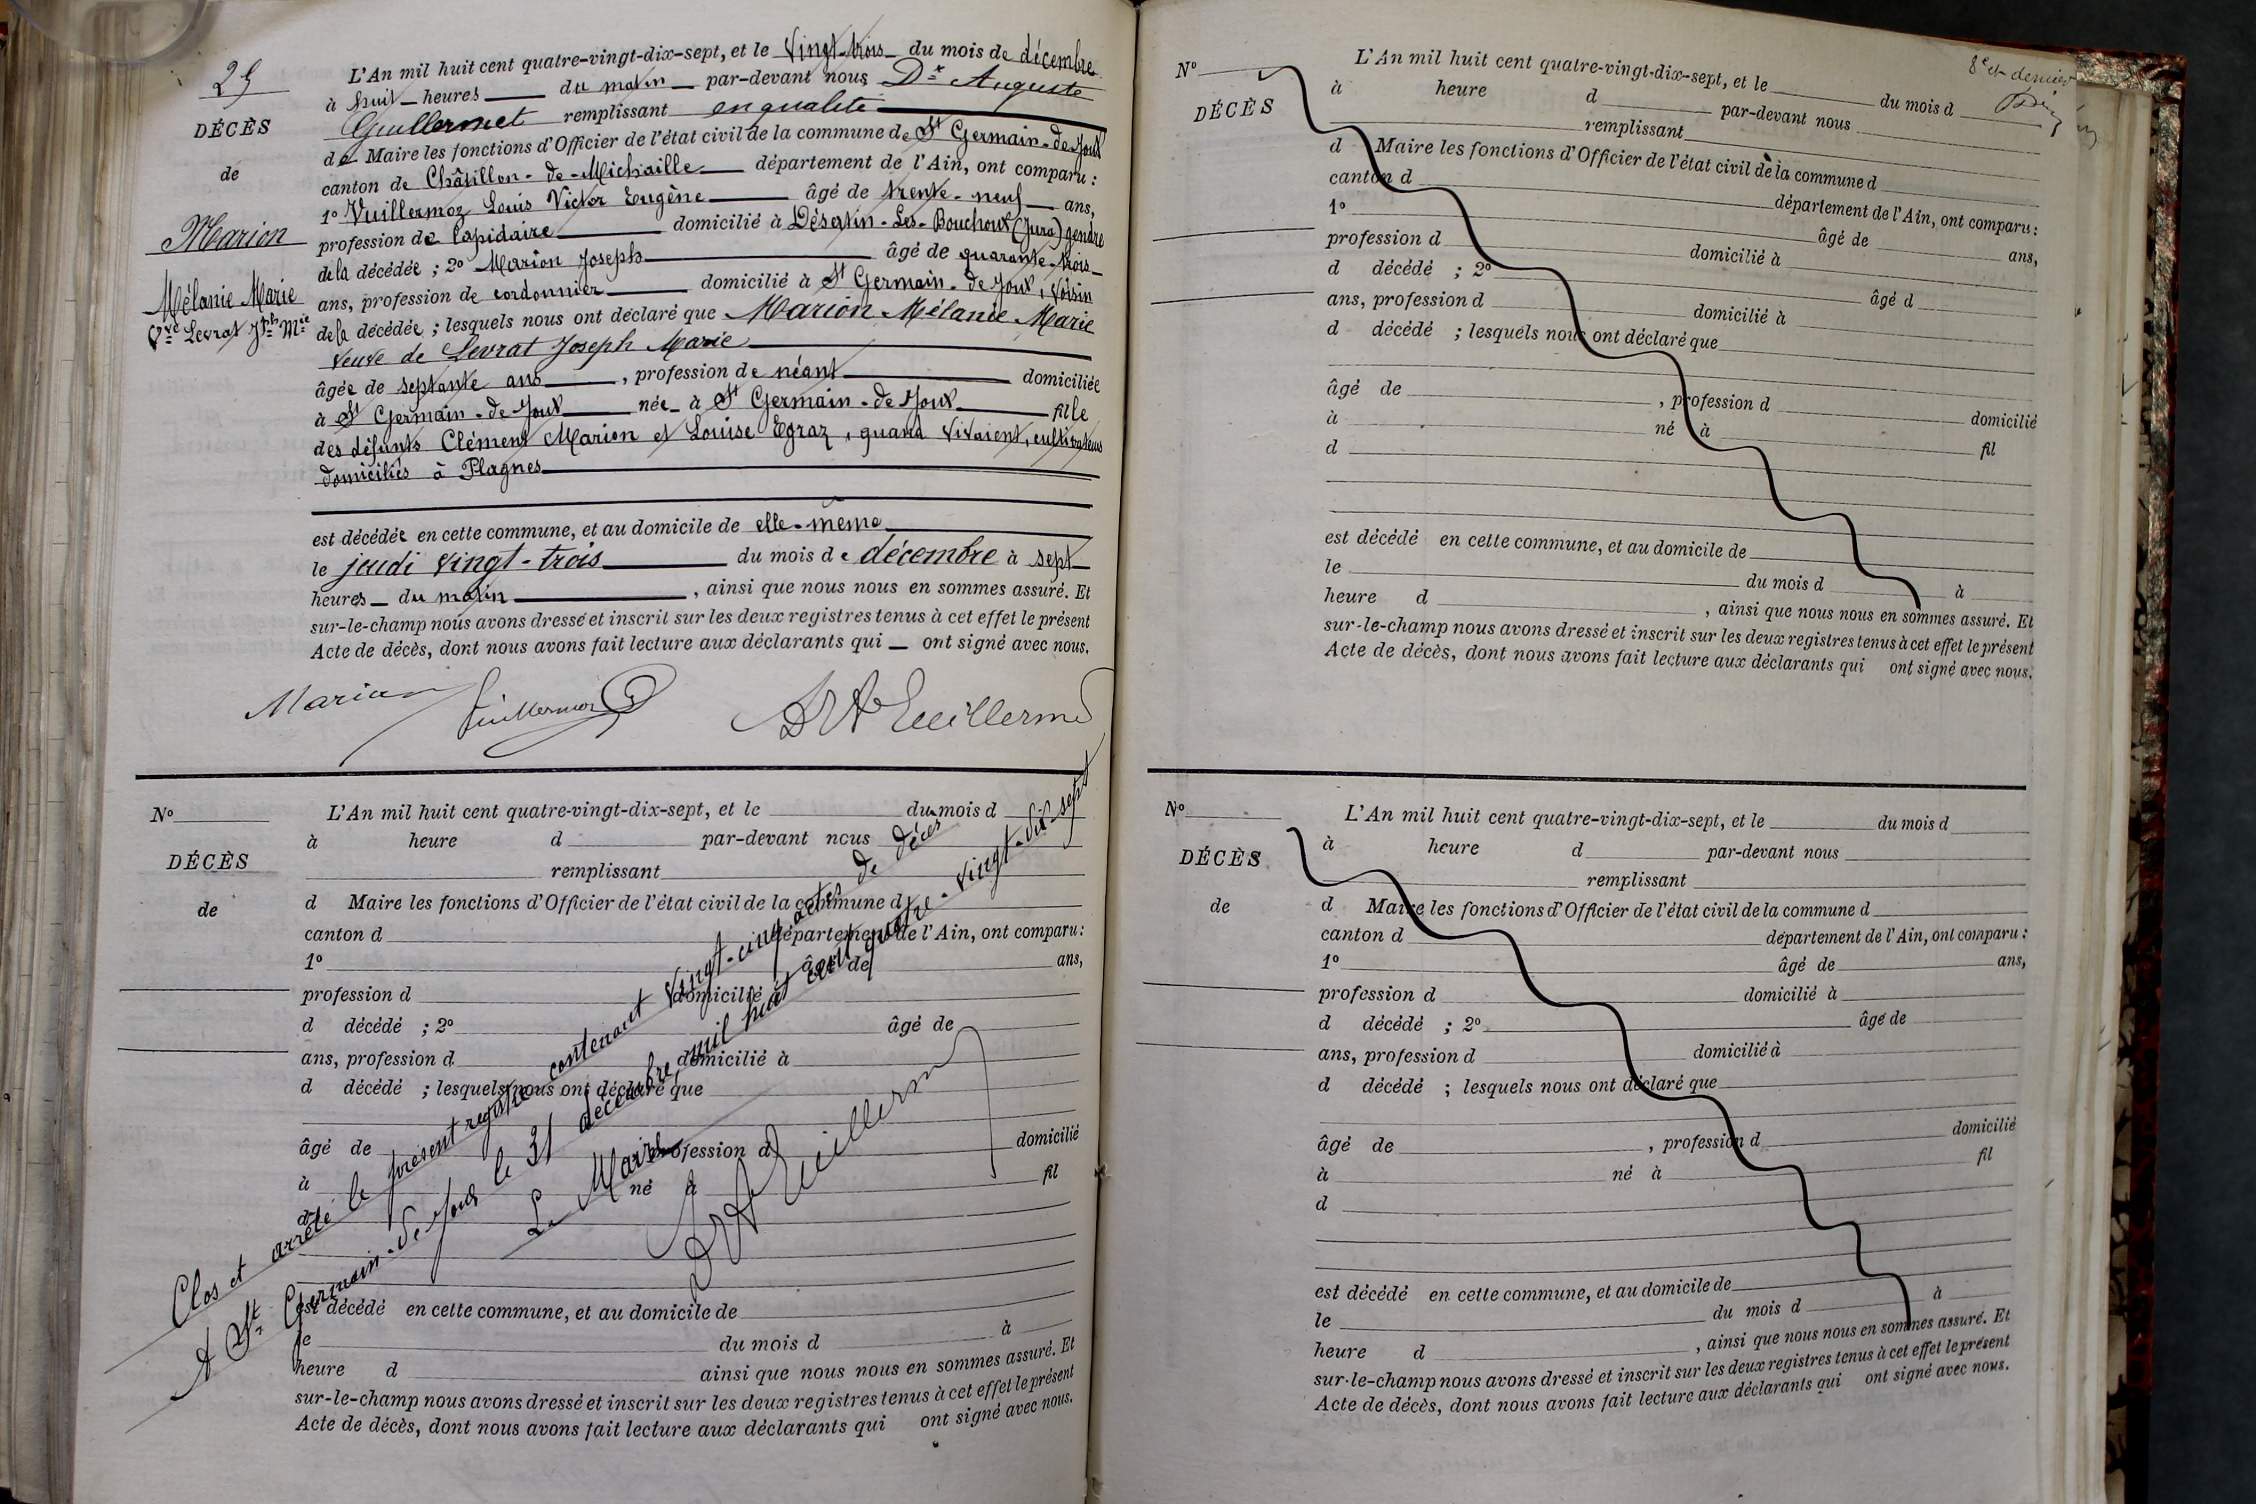 25
DÉCÈS
de
Marion
Mélanie Marie
Vve Levrat Jph Mie
L'An mil huit cent quatre-vingt-dix-sept, et le vingt-trois du mois de décembre
à huit heures du matin par-devant nous Dr Auguste
Guillermet remplissant en qualité
de Maire les fonctions d'Officier de l'état civil de la commune de St Germain-de-Joux
canton de Châtillon-de-Michaille département de l'Ain, ont comparu :
1º Vuillermoz Louis Victor Eugène âgé de trente-neuf ans,
profession de lapidaire domicilié à Désertin-Les-Bouchoux (Jura) gendre
de la décédée ; 2º Marion Joseph âgé de quarante-trois
ans, profession de cordonnier domicilié à St Germain-de-Joux, voisin
de la décédée ; lesquels nous ont déclaré que Marion Mélanie Marie
veuve de Levrat Joseph Marie
âgée de septante ans , profession de néant domiciliée
à St Germain-de-Joux née à St Germain-de-Joux fille
des défunts Clément Marion et Louise Egraz, quand vivaient, cultivateurs
domiciliés à Plagnes
est décédée en cette commune, et au domicile de elle-même
le jeudi vingt-trois du mois de décembre à sept
heures du matin , ainsi que nous nous en sommes assuré. Et
sur-le-champ nous avons dressé et inscrit sur les deux registres tenus à cet effet le présent
Acte de décès, dont nous avons fait lecture aux déclarants qui ont signé avec nous.
Marion Vuillermoz Dr A Guillermet
Nº
DÉCÈS
de
L'An mil huit cent quatre-vingt-dix-sept, et le du mois d
à heure d par-devant nous
remplissant
d Maire les fonctions d'Officier de l'état civil de la commune d
canton d département de l'Ain, ont comparu :
1º âgé de ans,
profession d domicilié à
d décédé ; 2º âgé de
ans, profession d domicilié à
d décédé ; lesquels nous ont déclaré que
âgé de profession d domicilié
à né à fil
d
est décédé en cette commune, et au domicile de
le du mois d à
heure d ainsi que nous nous en sommes assuré. Et
sur-le-champ nous avons dressé et inscrit sur les deux registres tenus à cet effet le présent
Acte de décès, dont nous avons fait lecture aux déclarants qui ont signé avec nous.
Clos et arrêté le présent registre contenant vingt-cinq actes de décès
A St Germain-de-Joux le 31 décembre, mil huit cent quatre-vingt-dix-sept
Le Maire
Dr A Guillermet
8e et dernier
Nº
DÉCÈS
L'An mil huit cent quatre-vingt-dix-sept, et le du mois d
à heure d par-devant nous
remplissant
d Maire les fonctions d'Officier de l'état civil de la commune d
canton d département de l'Ain, ont comparu :
1º âgé de ans,
profession d domicilié à
d décédé ; 2º âgé d
ans, profession d domicilié à
d décédé ; lesquels nous ont déclaré que
âgé de , profession d domicilié
à né à fil
d
est décédé en cette commune, et au domicile de
le du mois d à
heure d , ainsi que nous nous en sommes assuré. Et
sur-le-champ nous avons dressé et inscrit sur les deux registres tenus à cet effet le présent
Acte de décès, dont nous avons fait lecture aux déclarants qui ont signé avec nous.
Nº
DÉCÈS
de
L'An mil huit cent quatre-vingt-dix-sept, et le du mois d
à heure d par-devant nous
remplissant
d Maire les fonctions d'Officier de l'état civil de la commune d
canton d département de l'Ain, ont comparu :
1º âgé de ans,
profession d domicilié à
d décédé ; 2º âgé de
ans, profession d domicilié à
d décédé ; lesquels nous ont déclaré que
âgé de , profession d domicilié
à né à fil
d
est décédé en cette commune, et au domicile de
le du mois d à
heure d , ainsi que nous nous en sommes assuré. Et
sur-le-champ nous avons dressé et inscrit sur les deux registres tenus à cet effet le présent
Acte de décès, dont nous avons fait lecture aux déclarants qui ont signé avec nous.